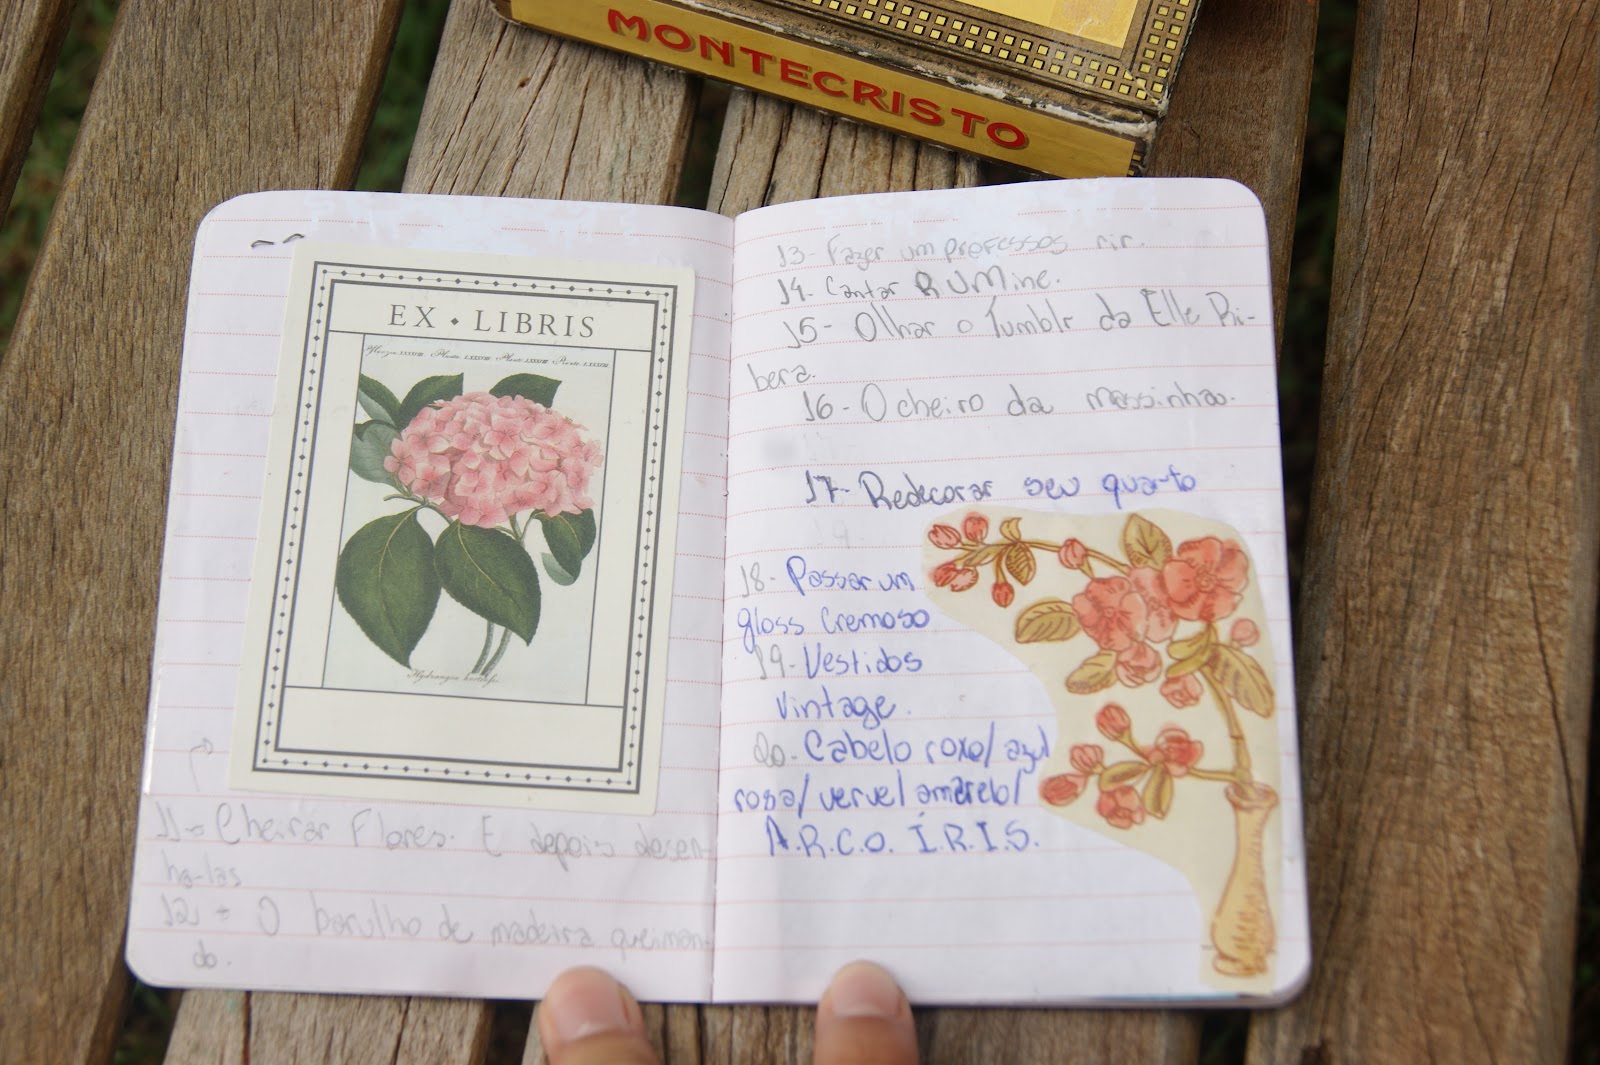 MONTECRISTO
EX • LIBRIS
11 - Cheirar Flores. E depois desen-
ha-las
12 - O barulho de madeira queiman-
do.
13 - Fazer um professor rir.
14 - Cantar RUMine.
15 - Olhar o Tumblr da Elle Ri-
bera.
16 - O cheiro da massinha.
17 - Redecorar seu quarto
18 - Passar um
gloss cremoso
19 - Vestidos
vintage.
20 - Cabelo roxo/azul
rosa/verve/amarelo/
A.R.C.O. Í.R.I.S.